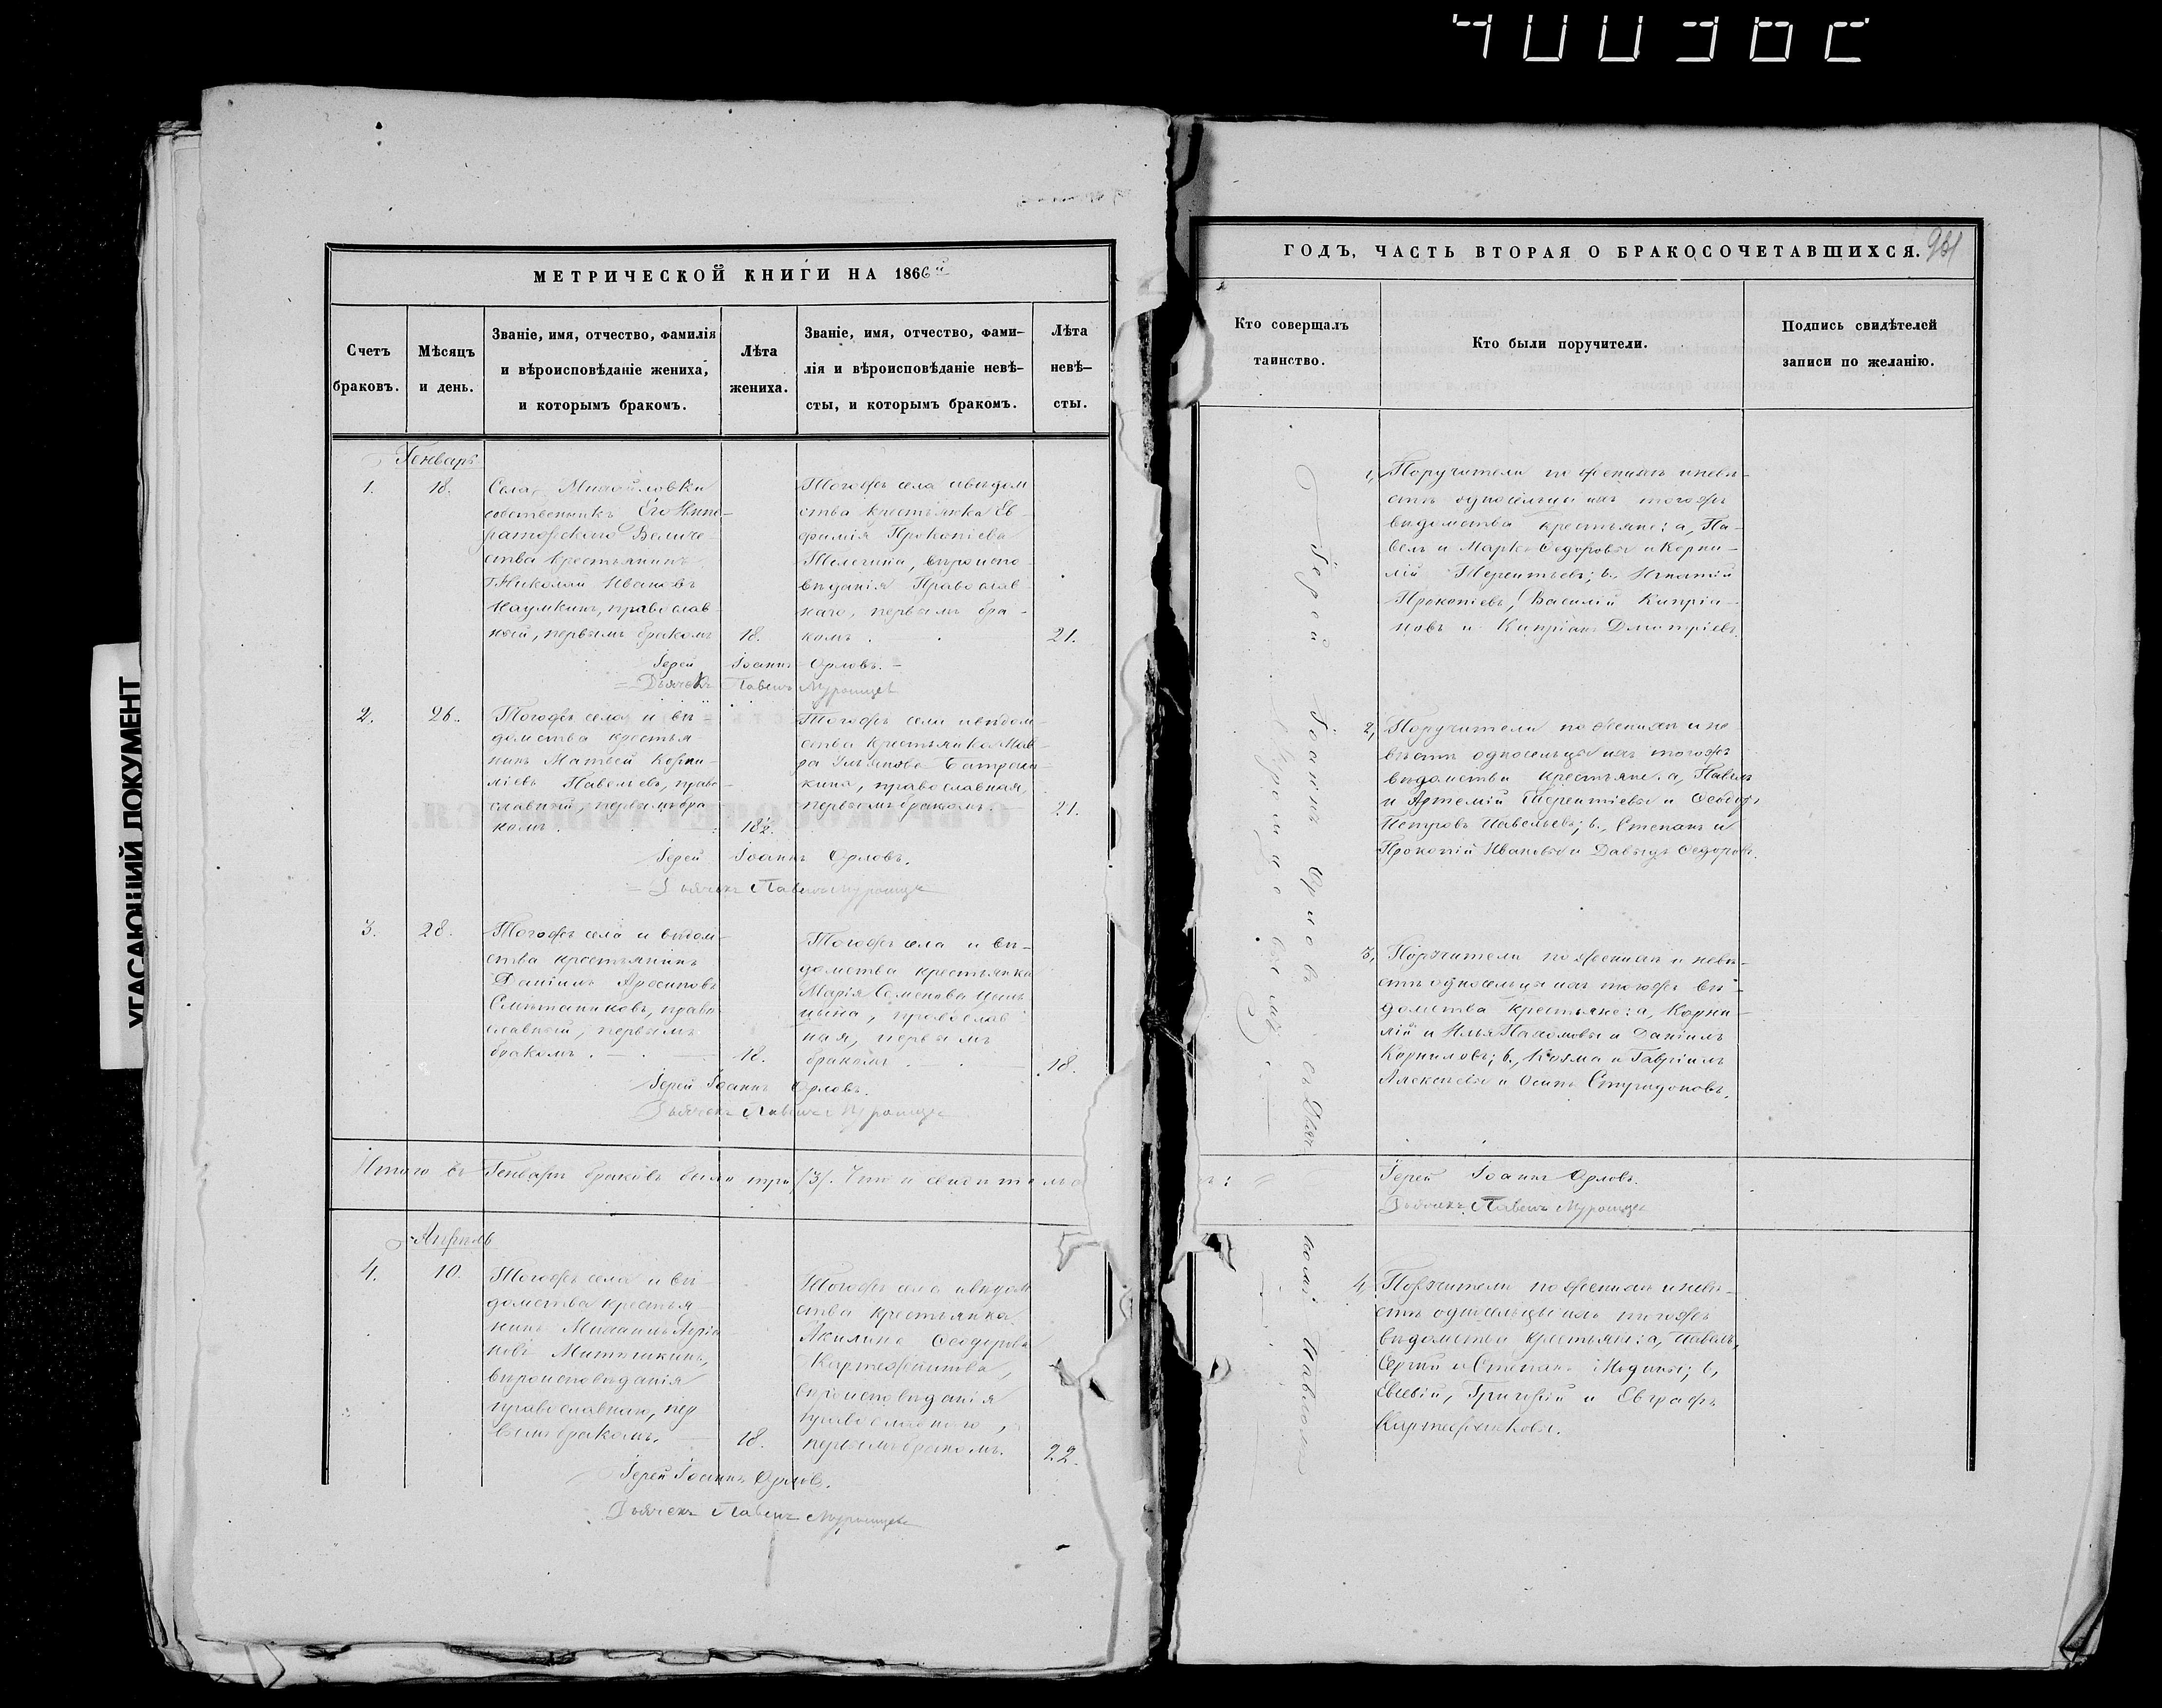 400362
УГАСАЮЩИЙ ДОКУМЕНТ
МЕТРИЧЕСКОЙ КНИГИ НА 1866й
Счетъ браковъ.
Мѣсяцъ и день.
Званіе, имя, отчество, фамилія
и вѣроисповѣданіе жениха,
и которымъ бракомъ.
Лѣта жениха.
Званіе, имя, отчество, фами-
лія и вѣроисповѣданіе невѣ-
сты, и которымъ бракомъ.
Лѣта невѣ-
сты.
Генварь
1.
18.
Села Михайловки
собственникъ Его Импе-
раторскаго Величе-
ства крестьянинъ
Николай Ивановъ
Наумкинъ, православ-
ный, первымъ бракомъ
18.
Тогожъ села и вѣдом
ства крестьянка Ев-
фимія Прокопіева
вѣроиспо
вѣданія Православ
наго, первымъ бра-
комъ.
21.
Іерей Іоаннъ Орловъ.
Дьячекъ Павелъ
2.
26.
Тогожъ села и вѣ-
домства крестья-
нинъ Матвей Корни-
ліевъ Павельевъ, право-
славный, первымъ бра
комъ.
18½.
Тогожъ села и вѣдом-
ства крестьянка Мав-
ра Ульянова Батрака-
кина, православная,
первымъ бракомъ.
21.
Іерей Іоаннъ Орловъ.
Дьячекъ Павелъ
3.
28.
Тогожъ села и вѣдом-
ства крестьянинъ
Даніилъ
Сметанниковъ, право-
славный, первымъ
бракомъ.
18.
Тогожъ села и вѣ-
домства крестьянка
Марія Семенова
православ
ная, первымъ
бракомъ
18.
Іерей Іоаннъ Орловъ.
Дьячекъ Павелъ
Итого въ Генварѣ браковъ было три /3/. Что и
Апрѣль
4.
10.
Тогожъ села и вѣ-
домства крестья-
нинъ Михаилъ
Митюшкинъ,
вѣроисповѣданія
православнаго, пер
вымъ бракомъ.
18.
Тогожъ села и вѣдом
ства крестьянка
Акилина Ѳеодорова
Картежникова,
вѣроисповѣданія
православнаго,
первымъ бракомъ.
22.
Іерей Іоаннъ Орловъ.
Дьячекъ Павелъ
ГОДЪ, ЧАСТЬ ВТОРАЯ О БРАКОСОЧЕТАВШИХСЯ.
Кто совершалъ
таинство.
Кто были поручители.
Подпись свидѣтелей
записи по желанію.
Іерей Іоаннъ Орловъ съ Дьяч
комъ Павломъ
1, Поручители по женихѣ и невѣ-
стѣ односельцы ихъ тогожъ
вѣдомства крестьяне: а, Па-
велъ и Маркъ Ѳедоровы и Корни-
лій Терентьевъ; в, Игнатій
Прокопіевъ, Василій Кипріа-
новъ и Кипріанъ Дмитріевъ.
2, Поручители по женихѣ и не
вѣстѣ односельцы ихъ тогожъ
вѣдомства крестьяне: а, Павелъ
и Артемій Терентіевы и Ѳеодоръ
Петровъ Павельевъ; в, Степанъ и
Прокопій Ивановы и Давыдъ Ѳедоровъ.
3, Поручители по женихѣ и невѣ-
стѣ односельцы ихъ тогожъ вѣ-
домства крестьяне: а, Корни-
лій и Илья Пахомовы и Даніилъ
Корниловъ; в, Козма и Гавріилъ
Алексѣевы и Осипъ Спиридоновъ.
Іерей Іоаннъ Орловъ.
Дьячекъ Павелъ
4, Поручители по женихѣ и невѣ-
стѣ односельцы ихъ тогожъ
вѣдомства крестьяне: а, Павелъ,
Сергѣй и Степанъ; в,
Евсевій, Григорій и Евграфъ
Картежниковы.